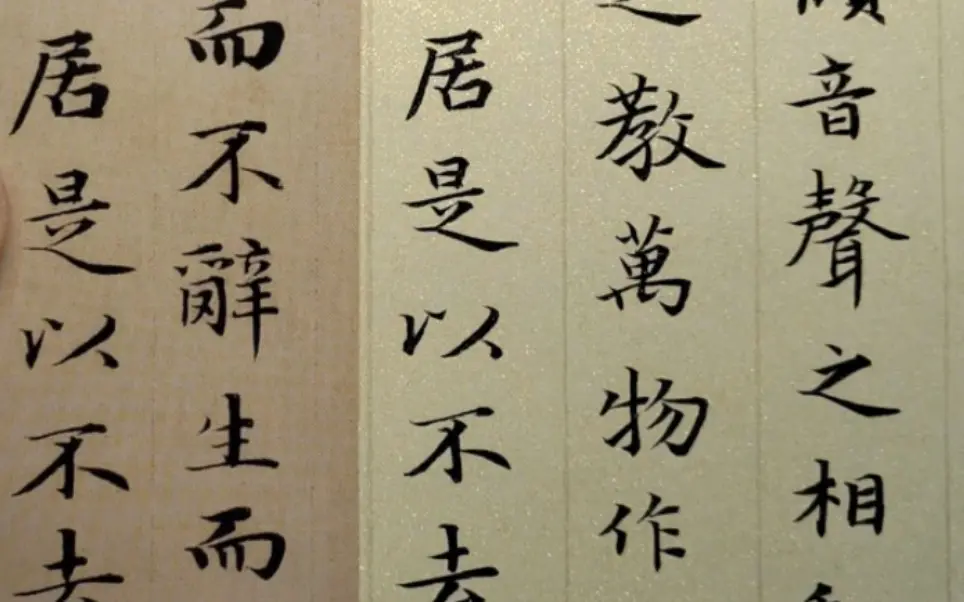 音聲之相
之教萬物作
居是以不去
而不辭生而
居是以不去